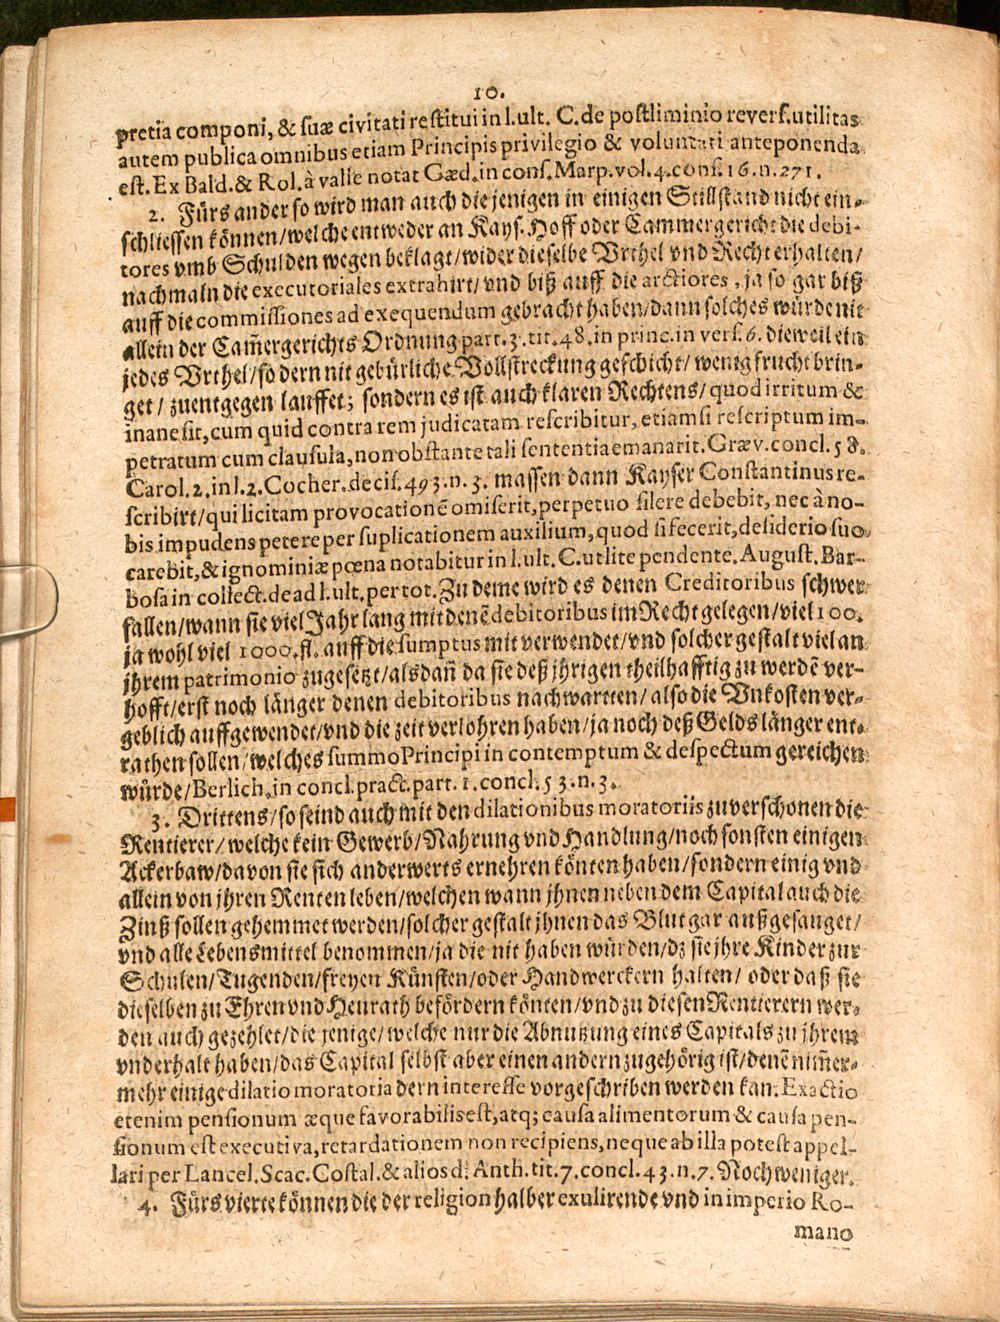 10.
pretia componi, & suæ civitati restitui in l. ult. C. de postliminio revers. utilitas
autem publica omnibus etiam Principis privilegio & voluntati anteponenda
est. Ex Bald. & Rol. à valle notat Gæd. in cons. Marp. vol. 4. cons. 16. n. 271.
2. Fürs ander so wird man auch die jenigen in einigen Stillstand nicht ein-
schliessen können/ welche entweder an Kays. Hoff oder Cammergericht die debi-
tores vmb Schulden wegen beklagt/ wider dieselbe Vrthel vnd Recht erhalten/
nachmaln die executoriales extrahirt/ vnd biß auff die arctiores, ja so gar biß
auff die commissiones ad exequendum gebracht haben/ dann solches würde nit
allein der Cam̃ergerichts Ordnung part. 3. tit. 48. in princ. in vers. 6. dieweil ein
jedes Vrthel/ so dern nit gebürliche Vollstreckung geschicht/ wenig frucht brin-
get/ zuentgegen lauffet; sondern es ist auch klaren Rechtens/ quod irritum &
inane sit, cum quid contra rem judicatam rescribitur, etiamsi rescriptum im-
petratum cum clausula, non obstante tali sententia emanarit. Græv. concl. 58.
Carol. 2. in l. 2. Cocher. decis. 493. n. 3. massen dann Kayser Constantinus re-
scribirt/ qui licitam provocationē omiserit, perpetuo silere debebit, nec à no-
bis impudens petere per suplicationem auxilium, quod si fecerit, desiderio suo
carebit, & ignominiæ pœna notabitur in l. ult. C. ut lite pendente. August. Bar-
bosa in collect. de ad l. ult. per tot. Zu deme wird es denen Creditoribus schwer
fallen/ wann sie viel Jahr lang mit denē debitoribus im Recht gelegen/ viel 100.
ja wohl viel 1000. fl. auff die sumptus mit verwendet/ vnd solcher gestalt viel an
jhrem patrimonio zugesetzt/ alsdañ da sie deß jhrigen theilhafftig zu werdē ver-
hofft/ erst noch länger denen debitoribus nachwartten/ also die Vnkosten ver-
geblich auffgewendet/ vnd die zeit verlohren haben/ ja noch deß Gelds länger ent-
rathen sollen/ welches summo Principi in contemptum & despectum gereichen
würde/ Berlich. in concl. pract. part. 1. concl. 53. n. 3.
3. Drittens/ so seind auch mit den dilationibus moratoriis zuverschonen die
Rentierer/ welche kein Gewerb/ Nahrung vnd Handlung/ noch sonsten einigen
Ackerbaw/ davon sie sich anderwerts ernehren könten haben/ sondern einig vnd
allein von jhren Renten leben/ welchen wann jhnen neben dem Capital auch die
Zinß sollen gehemmet werden/ solcher gestalt jhnen das Blut gar außgesauget/
vnd alle Lebensmittel benommen/ ja die nit haben würden/ dz sie jhre Kinder zur
Schulen/ Tugenden/ freyen Künsten/ oder Handwerckern halten/ oder daß sie
dieselben zu Ehren vnd Heurath befördern könten/ vnd zu diesen Rentierern wer-
den auch gezehlet/ die jenige/ welche nur die Abnutzung eines Capitals zu jhrem
vnderhalt haben/ das Capital selbst aber einen andern zugehörig ist/ denē nim̃er-
mehr einige dilatio moratoria dern interesse vorgeschriben werden kan. Exactio
etenim pensionum æque favorabilis est, atq; causa alimentorum & causa pen-
sionum est executiva, retardationem non recipiens, neque ab illa potest appel-
lari per Lancel. Scac. Costal. & alios d. Anth. tit. 7. concl. 43. n. 7. Noch weniger.
4. Fürs vierte können die der religion halber exulirende vnd in imperio Ro-
mano